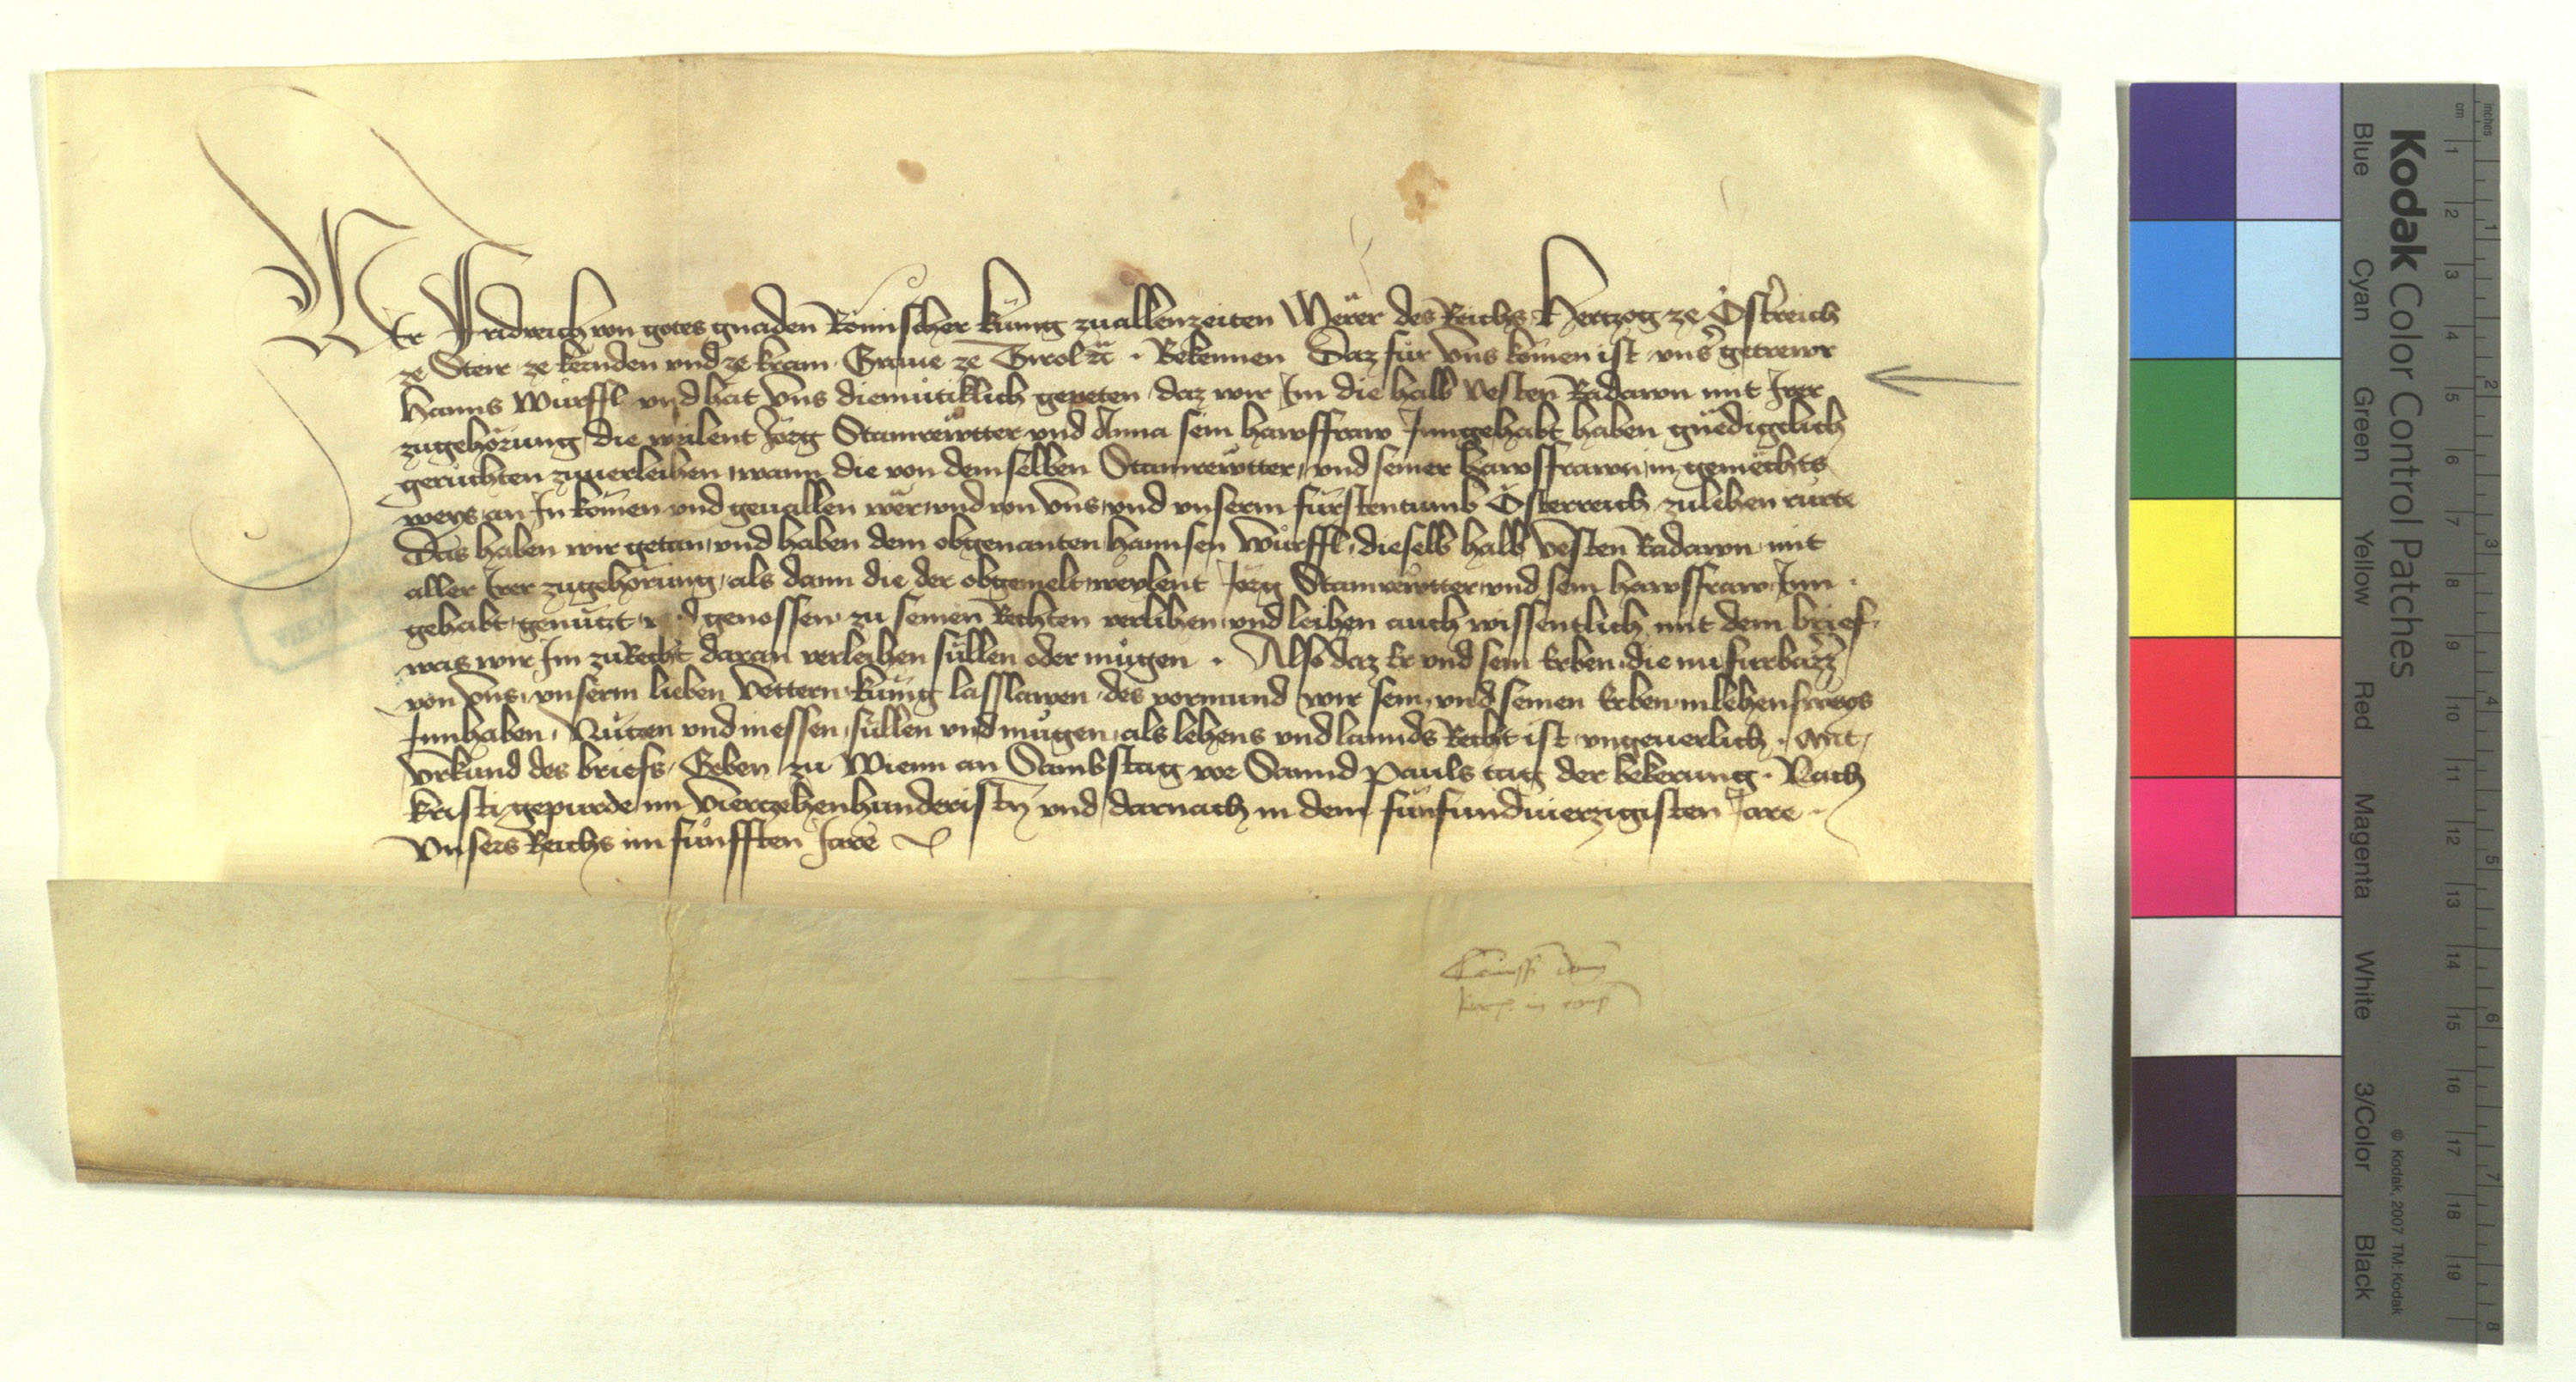 Wir Fridreich von gotes gnaden Römischer kunig zuallenzeiten Merer des Reichs Hertzog ze Österreich
ze Steir ze kernden und ze krain Graue ze Tirol etc. Bekennen Daz für vns komen ist vnser getrewr
hanns Würffl vnd hat vns diemutiklich gepeten daz wir Im die halb vesten Radawn mit Irer
zugehörung die weilent Jörg Stamrewtter vnd Anna sein hawsffraw Inngehabt haben gnedigclich
geruchten zuuerleihen wann die von demselben Stamrewtter vnd seiner hawsfrawn in gemechts
weys an In komen vnd geuallen wer vnd von vns vnd vnserm fürstentumb Österreich zulehen rürte
Das haben wir getan vnd haben dem obgenanten hannsen Würffl dieselb halb vesten Radawn mit
aller Irer zugehörung als dann die der obgemelt weylent Jörg Stamrewtter vnd sein hawsffraw Inn
gehabt genützt genossen zu seinen Rechten verlihen vnd leihen auch wissentlich mit dem brief
was wir Im zu Recht daran verleihen süllen oder mügen. Also daz Er vnd sein Erben die nu furbazz
von vns vnserm lieben Vettern kunig lasslawen des vormund wir sein vnd seinen Erben in lehensweys
Innhaben Nützen vnd niessen süllen vnd mügen als lehens vnd lannds Recht ist vngeuerlich. Mit
vrkund des briefs Geben zu Wienn an Sambstag vor Sannd Pauls tag der bekerung. Nach
kristi gepurde im vierzehenhunderistn vnd darnach in dem fünfundvierzigisten Jare.
Vnsers Reichs im fünfften Jare
Kodak Color Control Patches
Blue Cyan Green Yellow Red Magenta White 3/Color Black
inches 1 2 3 4 5 6 7 8
cm 1 2 3 4 5 6 7 8 9 10 11 12 13 14 15 16 17 18 19
© Kodak, 2007 TM: Kodak